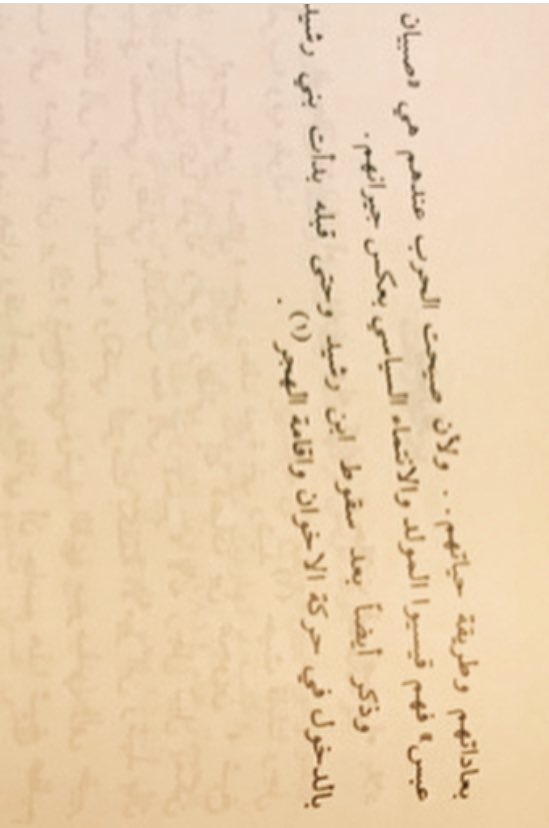 بعاداتهم وطريقة حياتهم . . ولأن صيحت الحرب عندهم هي «صبيان
عبس» فهم قيسيوا المولد والانتماء السياسي بعكس جيرانهم .
وذكر أيضاً بعد سقوط ابن رشيد وحتى قبله بدأت بني رشيد
بالدخول في حركة الاخوان واقامة الهجر (١) .